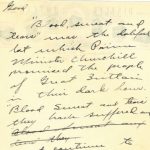 Blood, sweat and
tears was the
lot which Prime
Minister Churchill
promised the people
of Great Britain
in their dark hour.
Blood Sweat and tears
they have suffered
continue to